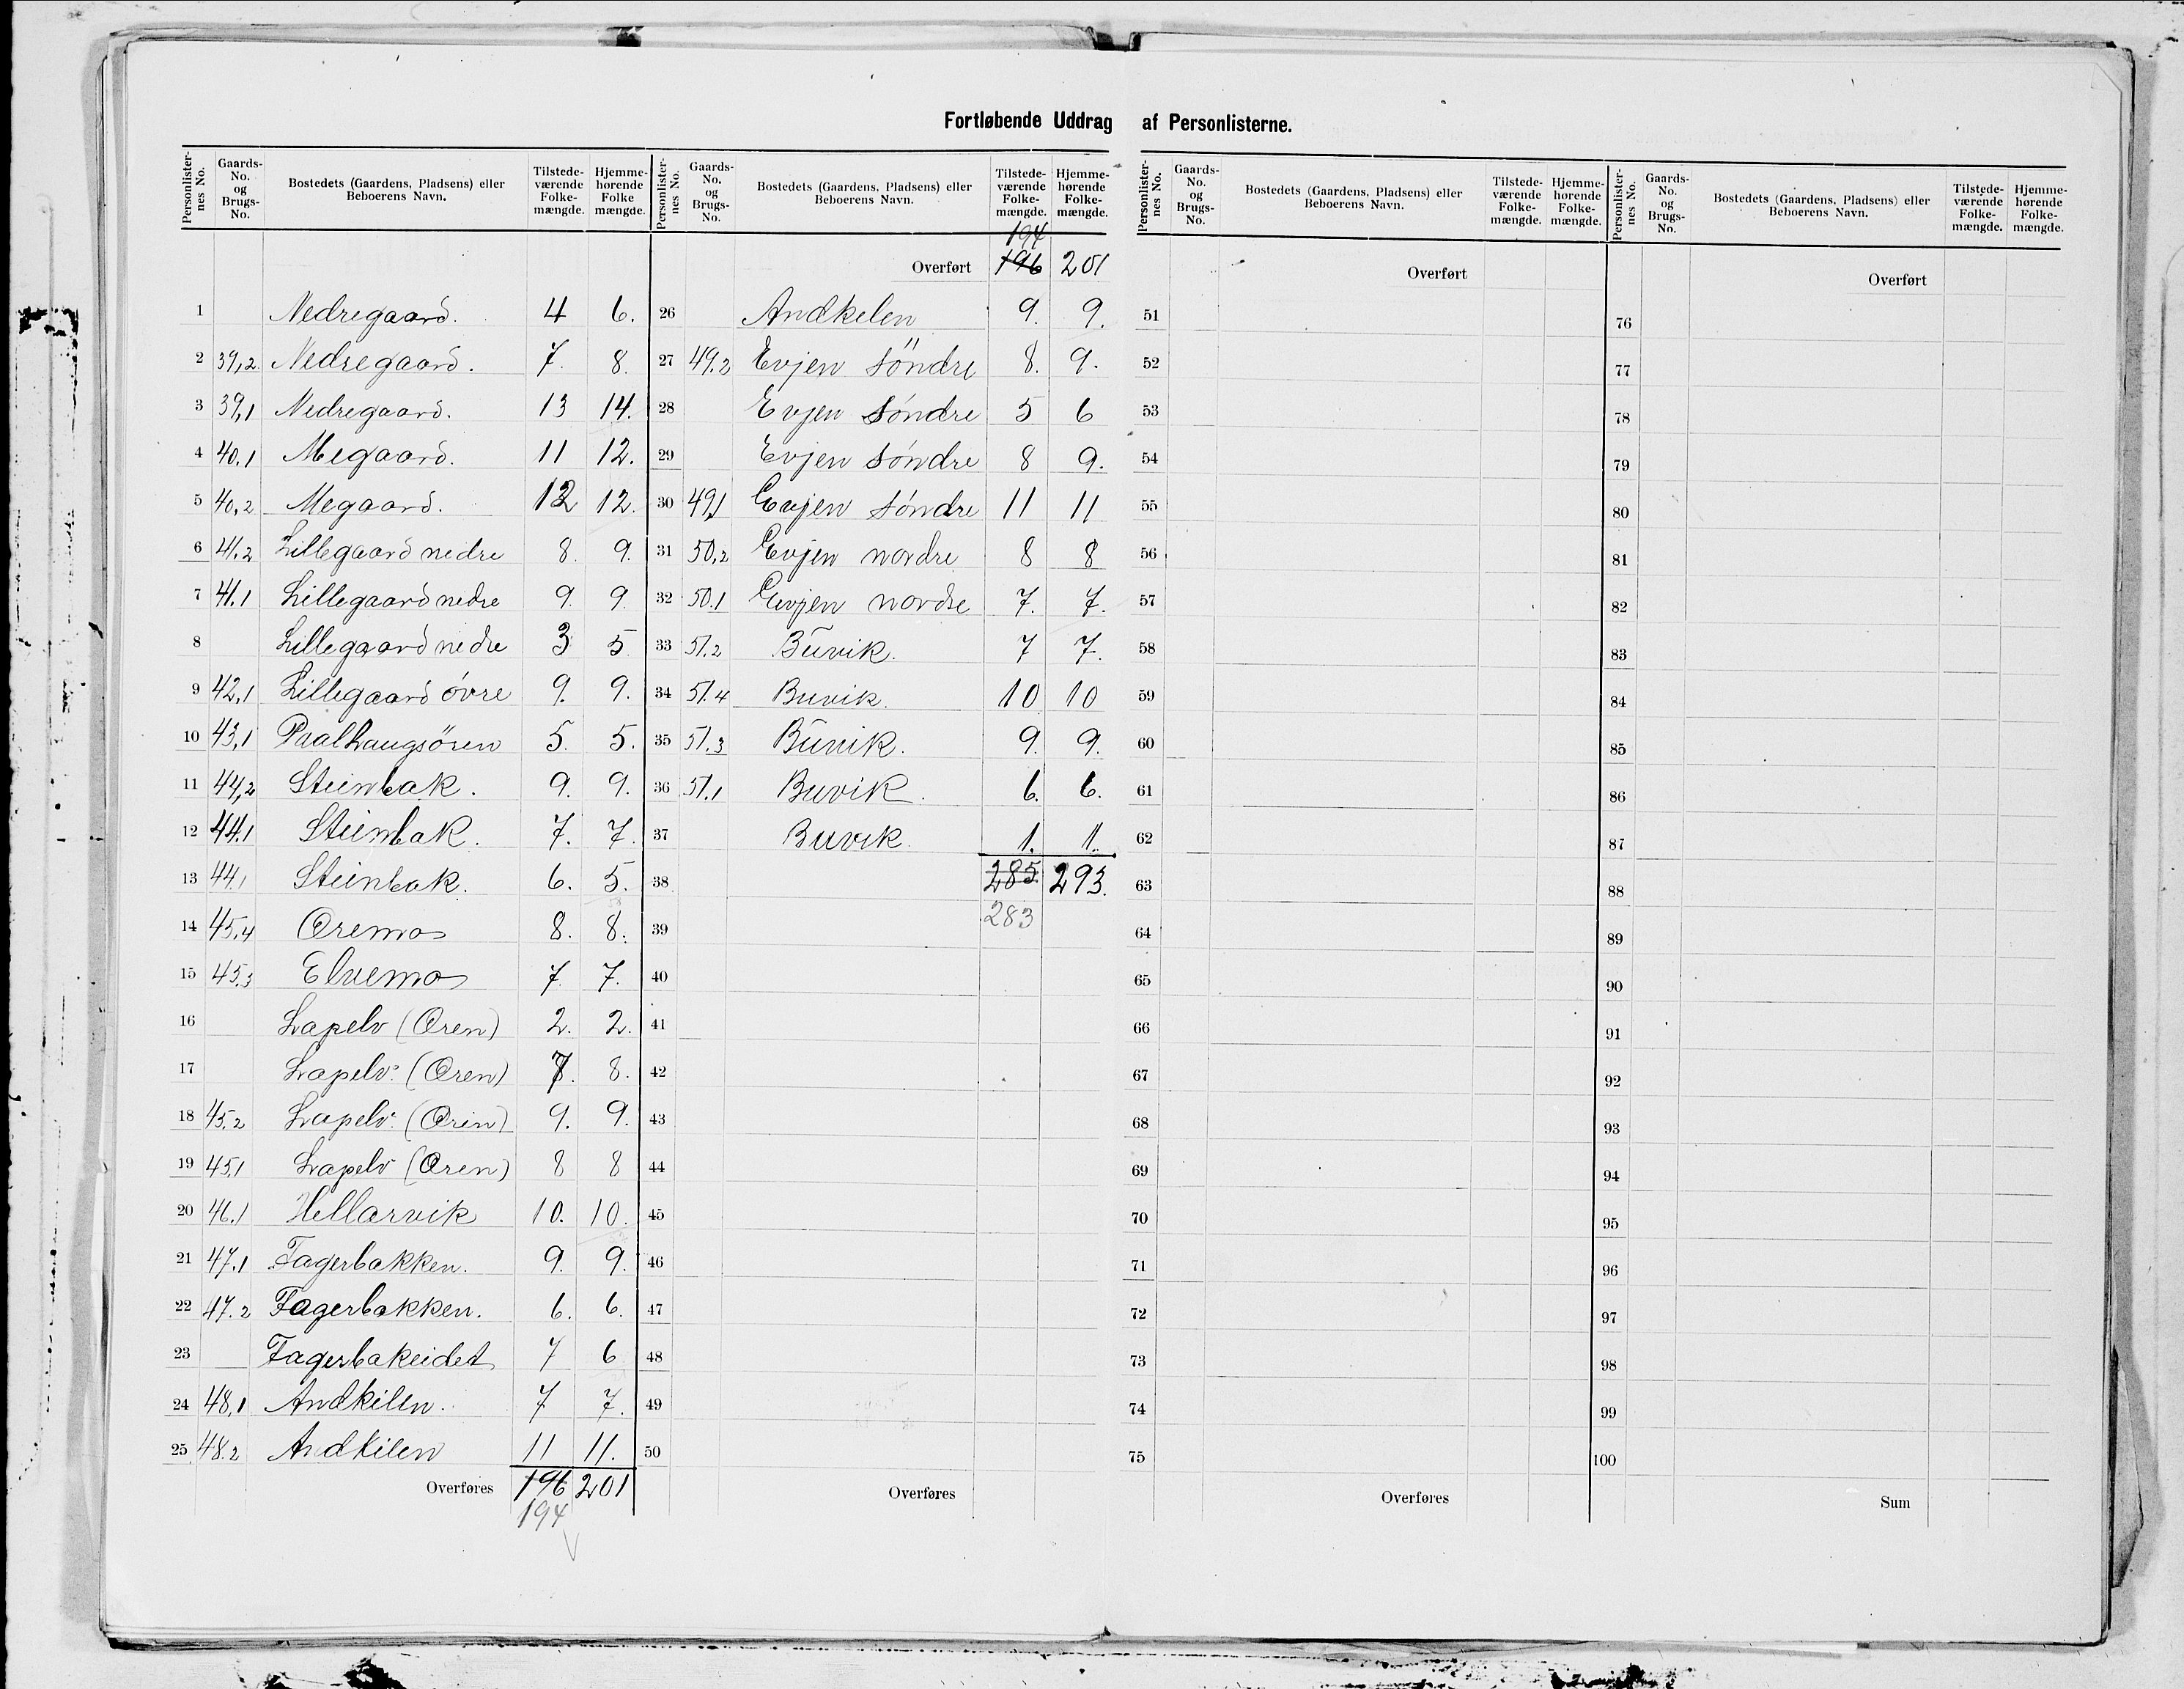 Fortløbende Uddrag af Personlisterne.
Personlisternes No. Gaards-No. og Brugs-No. Bostedets (Gaardens, Pladsens) eller Beboerens Navn. Tilstedeværende Folkemængde. Hjemmehørende Folke mængde.
1 Nedregaard. 4 6.
2 39,2 Nedregaard. 7. 8.
3 39,1 Nedregaard. 13 14.
4 40.1 Megaard. 11 12.
5 40,2 Megaard. 12 12.
6 41.2 Lillegaard nedre 8. 9.
7 41.1 Lillegaard nedre 9. 9.
8 Lillegaard nedre 3 5
9 42,1 Lillegaard óvre 9. 9.
10 43,1 Paalhaugsören 5. 5.
11 44,2 Steinbak. 9. 9.
12 44.1 Steinbak. 7. 7.
13 44.1 Steinbak. 6. 5.
14 45.4 Øremo 8. 8.
15 45.3 Elvemo 7. 7.
16 Lapelv (Øren) 2. 2.
17 Lapelv. (Øren) 7. 8.
18 45.2 Lapelv. (Øren) 9. 9.
19 45.1 Lapelv (Øren) 8 8
20 46.1 Hellarvik 10. 10.
21 47.1 Fagerbakken. 9. 9.
22 47.2 Fagerbakken. 6. 6.
23 Fagerbakeidet 7 6
24 48,1 Andkilen. 7 7.
25 48.2 Andkilen 11 11.
Overføres 196 201
194
Personlisternes No. Gaards-No. og Brugs-No. Bostedets (Gaardens, Pladsens) eller Beboerens Navn. Tilstedeværende Folkemængde. Hjemmehørende Folkemængde.
194
Overført 196 201
26 Andkelen 9. 9.
27 49.2 Evjen söndre 8. 9.
28 Evjen söndre 5 6
29 Evjen söndre 8 9.
30 49.1 Evjen söndre 11 11
31 50,2 Evjen nordre 8 8
32 50.1 Evjen nordre 7. 7.
33 51.2 Buvik. 7 7.
34 51.4 Buvik. 10 10
35 51.3 Buvik. 9. 9.
36 51.1 Buvik. 6. 6.
37 Buvik. 1. 1.
38 285 293.
39 283
40
41
42
43
44
45
46
47
48
49
50
Overføres
Personlisternes No. Gaards-No. og Brugs-No. Bostedets (Gaardens, Pladsens) eller Beboerens Navn. Tilstedeværende Folkemængde. Hjemmehørende Folkemængde.
Overført
51
52
53
54
55
56
57
58
59
60
61
62
63
64
65
66
67
68
69
70
71
72
73
74
75
Overføres
Personlisternes No. Gaards-No. og Brugs-No. Bostedets (Gaardens, Pladsens) eller Beboerens Navn. Tilstedeværende Folkemængde. Hjemmehørende Folkemængde.
Overført
76
77
78
79
80
81
82
83
84
85
86
87
88
89
90
91
92
93
94
95
96
97
98
99
100
Sum